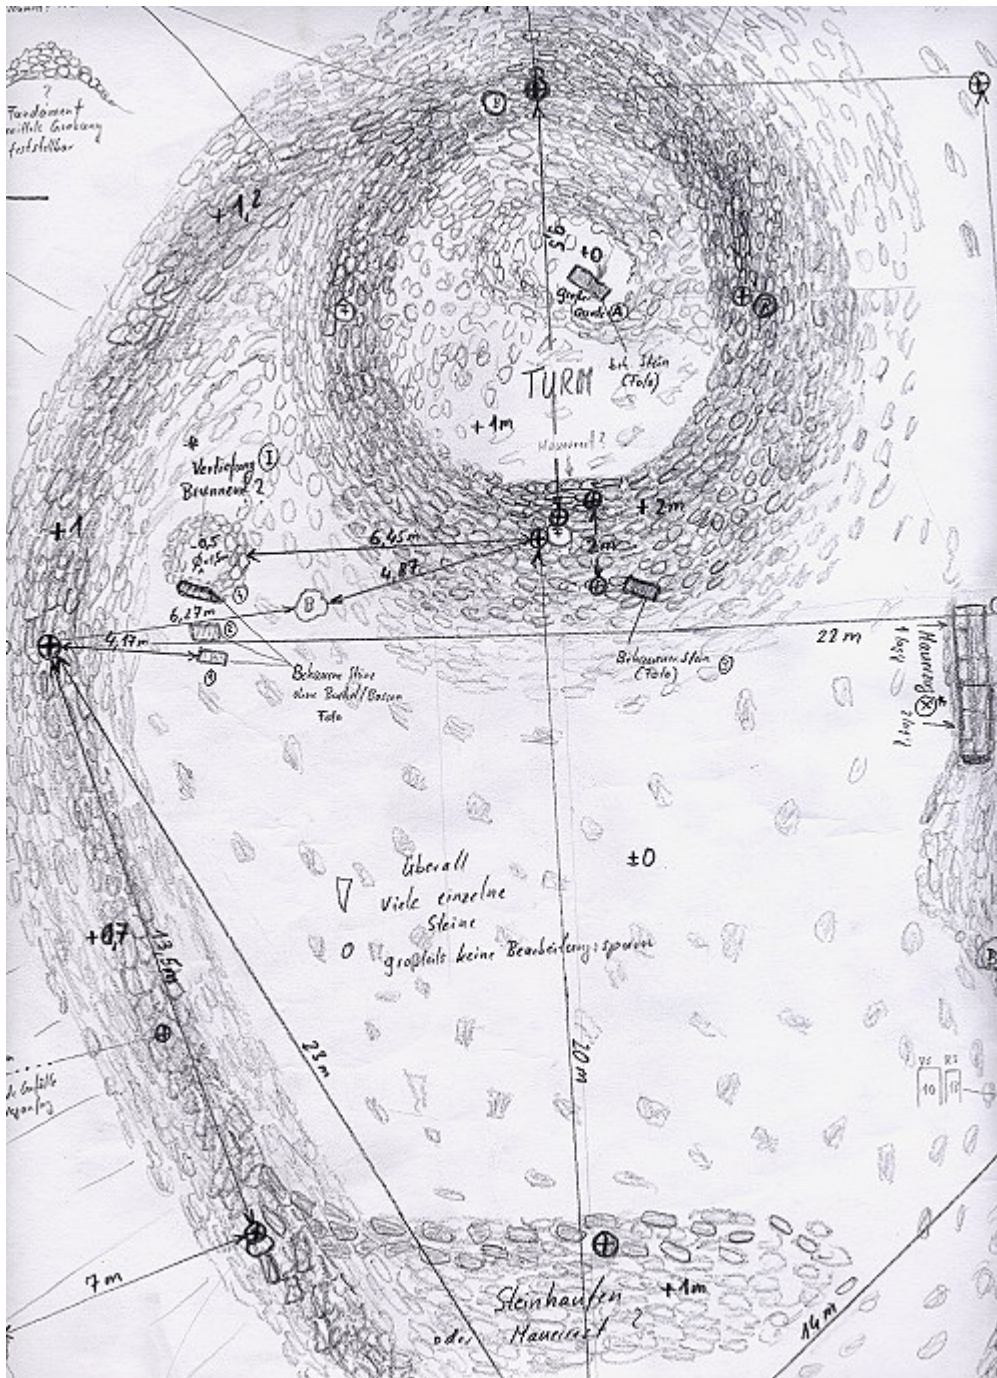 ?
Fundament
mittels Grabung
feststellbar
B
+1,2
9,5
+0
großer
Quader A
beh. Stein
(Foto)
TURM
+1m
Mauerrest?
*
Vertiefung I
Brunnen?
+2m
+1
-0,5
6,45m
2m
4,87
B
6,27m
4,17m
22 m
Behauener Stein
(Foto)
Behauene Steine
ohne Buckel/Bossen
Foto
*
±0
Überall
Viele einzelne
Steine
großteils keine Bearbeitungsspuren
+0,7
13,5m
23m
20m
10
7 m
Steinhaufen
oder Mauerrest ?
+1m
14m